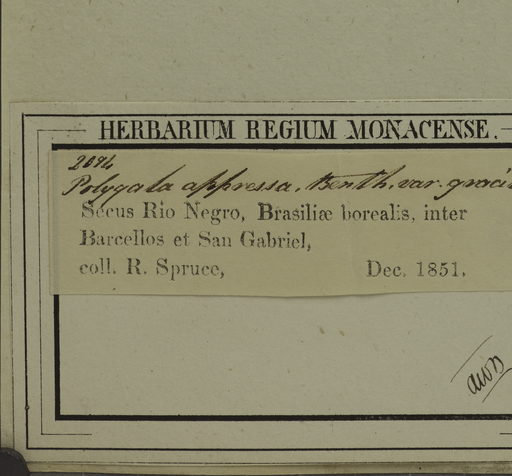 HERBARIUM REGIUM MONACENSE.
2094
Polygala appressa. Benth. var. graci
Secus Rio Negro, Brasiliæ borealis, inter
Barcellos et San Gabriel,
coll. R. Spruce, Dec. 1851.